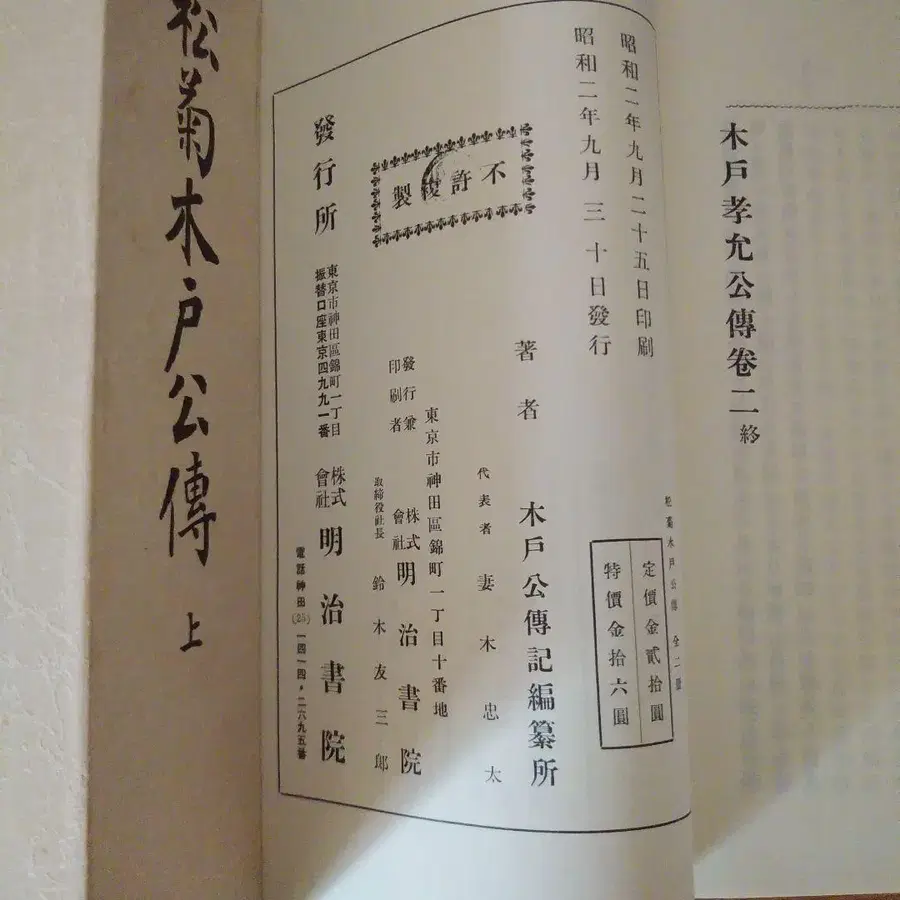 木戸孝允公傳卷二終
松菊木戸公傳 全二册
定價金貳拾圓
特價金拾六圓
昭和二年九月二十五日印刷
昭和二年九月三十日發行
不許複製
著者 木戸公傳記編纂所
代表者 妻木忠太
東京市神田區錦町一丁目十番地
發行兼印刷者 株式會社 明治書院
取締役社長 鈴木友三郎
發行所
東京市神田區錦町一丁目
振替口座東京四九九一番
株式會社 明治書院
電話神田(25)一四一四・二六九五番
松菊木戸公傳 上